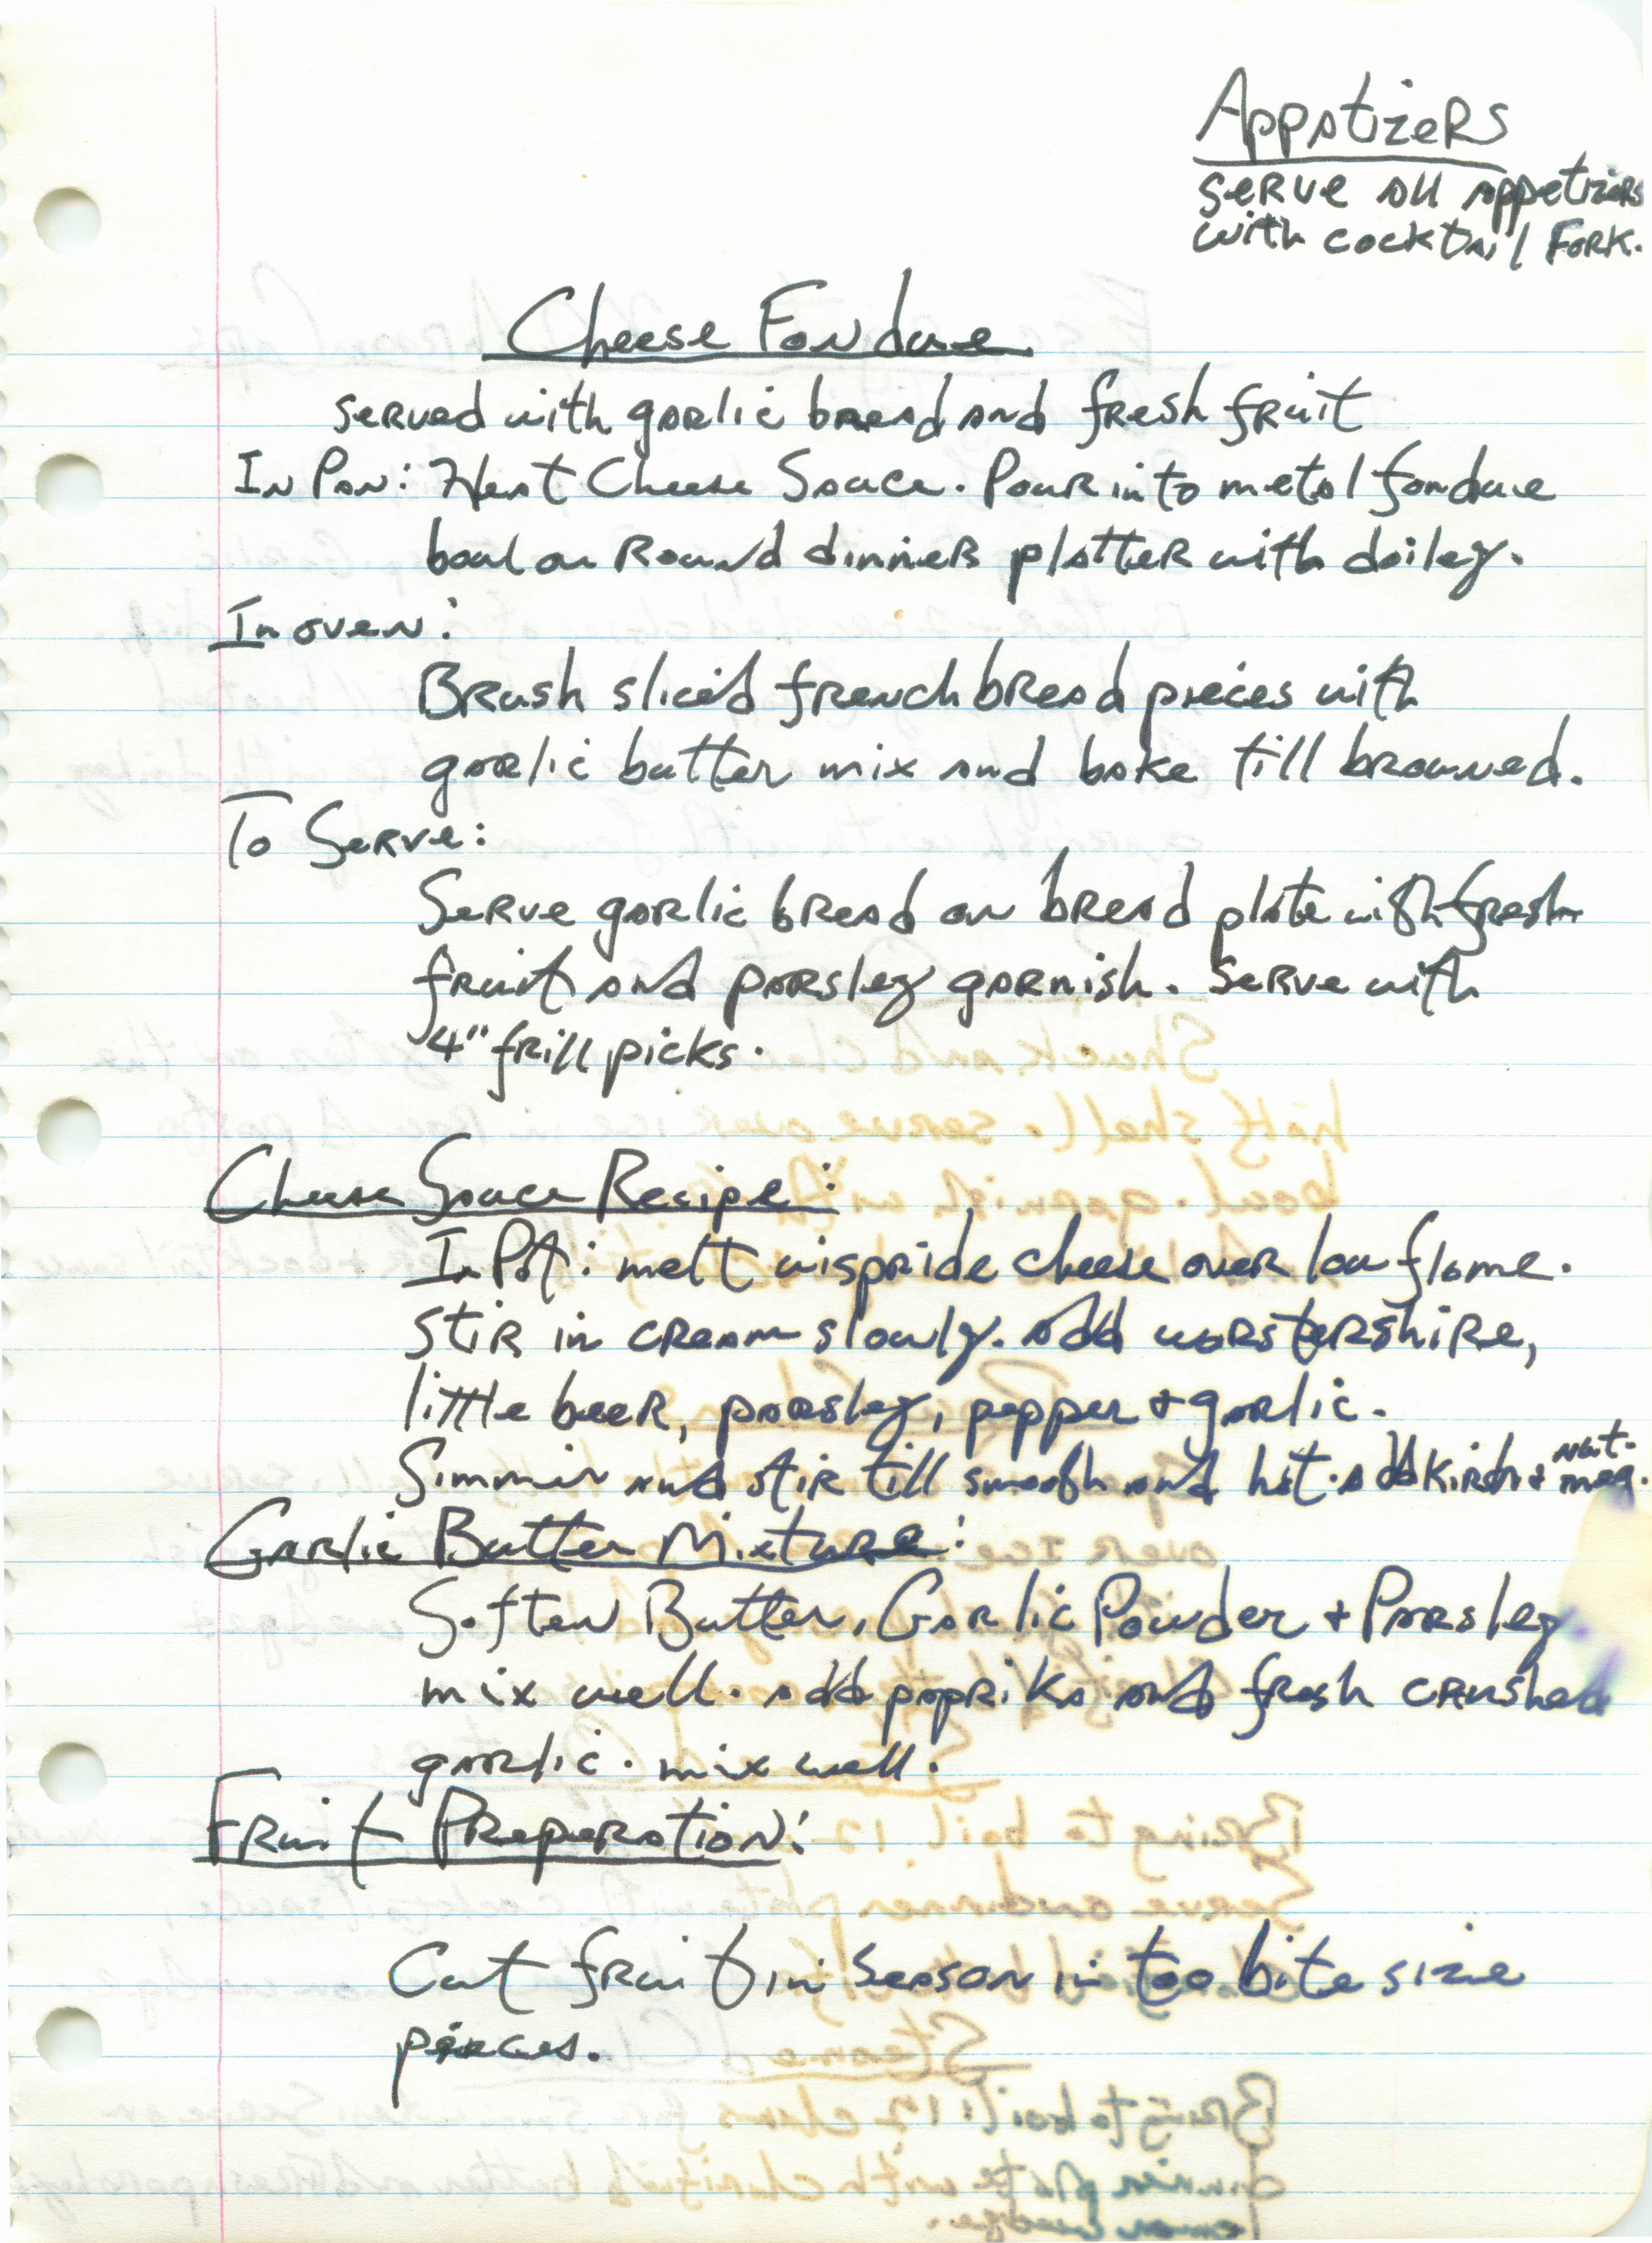 Appetizers
serve all appetizers
with cocktail Fork.
Cheese Fondue
served with garlic bread and fresh fruit
In Pan: Heat Cheese Sauce. Pour into metal fondue
bowl on Round dinner platter with doiley.
In oven:
Brush sliced french bread pieces with
garlic butter mix and bake till browned.
To Serve:
Serve garlic bread on bread plate with fresh
fruit and parsley garnish. Serve with
4" frill picks.
Cheese Sauce Recipe:
In Pot: melt wispride cheese over low flame.
Stir in cream slowly. Add worstershire,
little beer, parsley, pepper + garlic.
Simmer and stir till smooth and hot. add Kirsh + nut-
meg.
Garlic Butter Mixture:
Soften Butter, Garlic Powder + Parsley
mix well. add paprika and fresh crushed
garlic. mix well.
Fruit Preperation:
Cut fruit in season in too bite size
pieces.